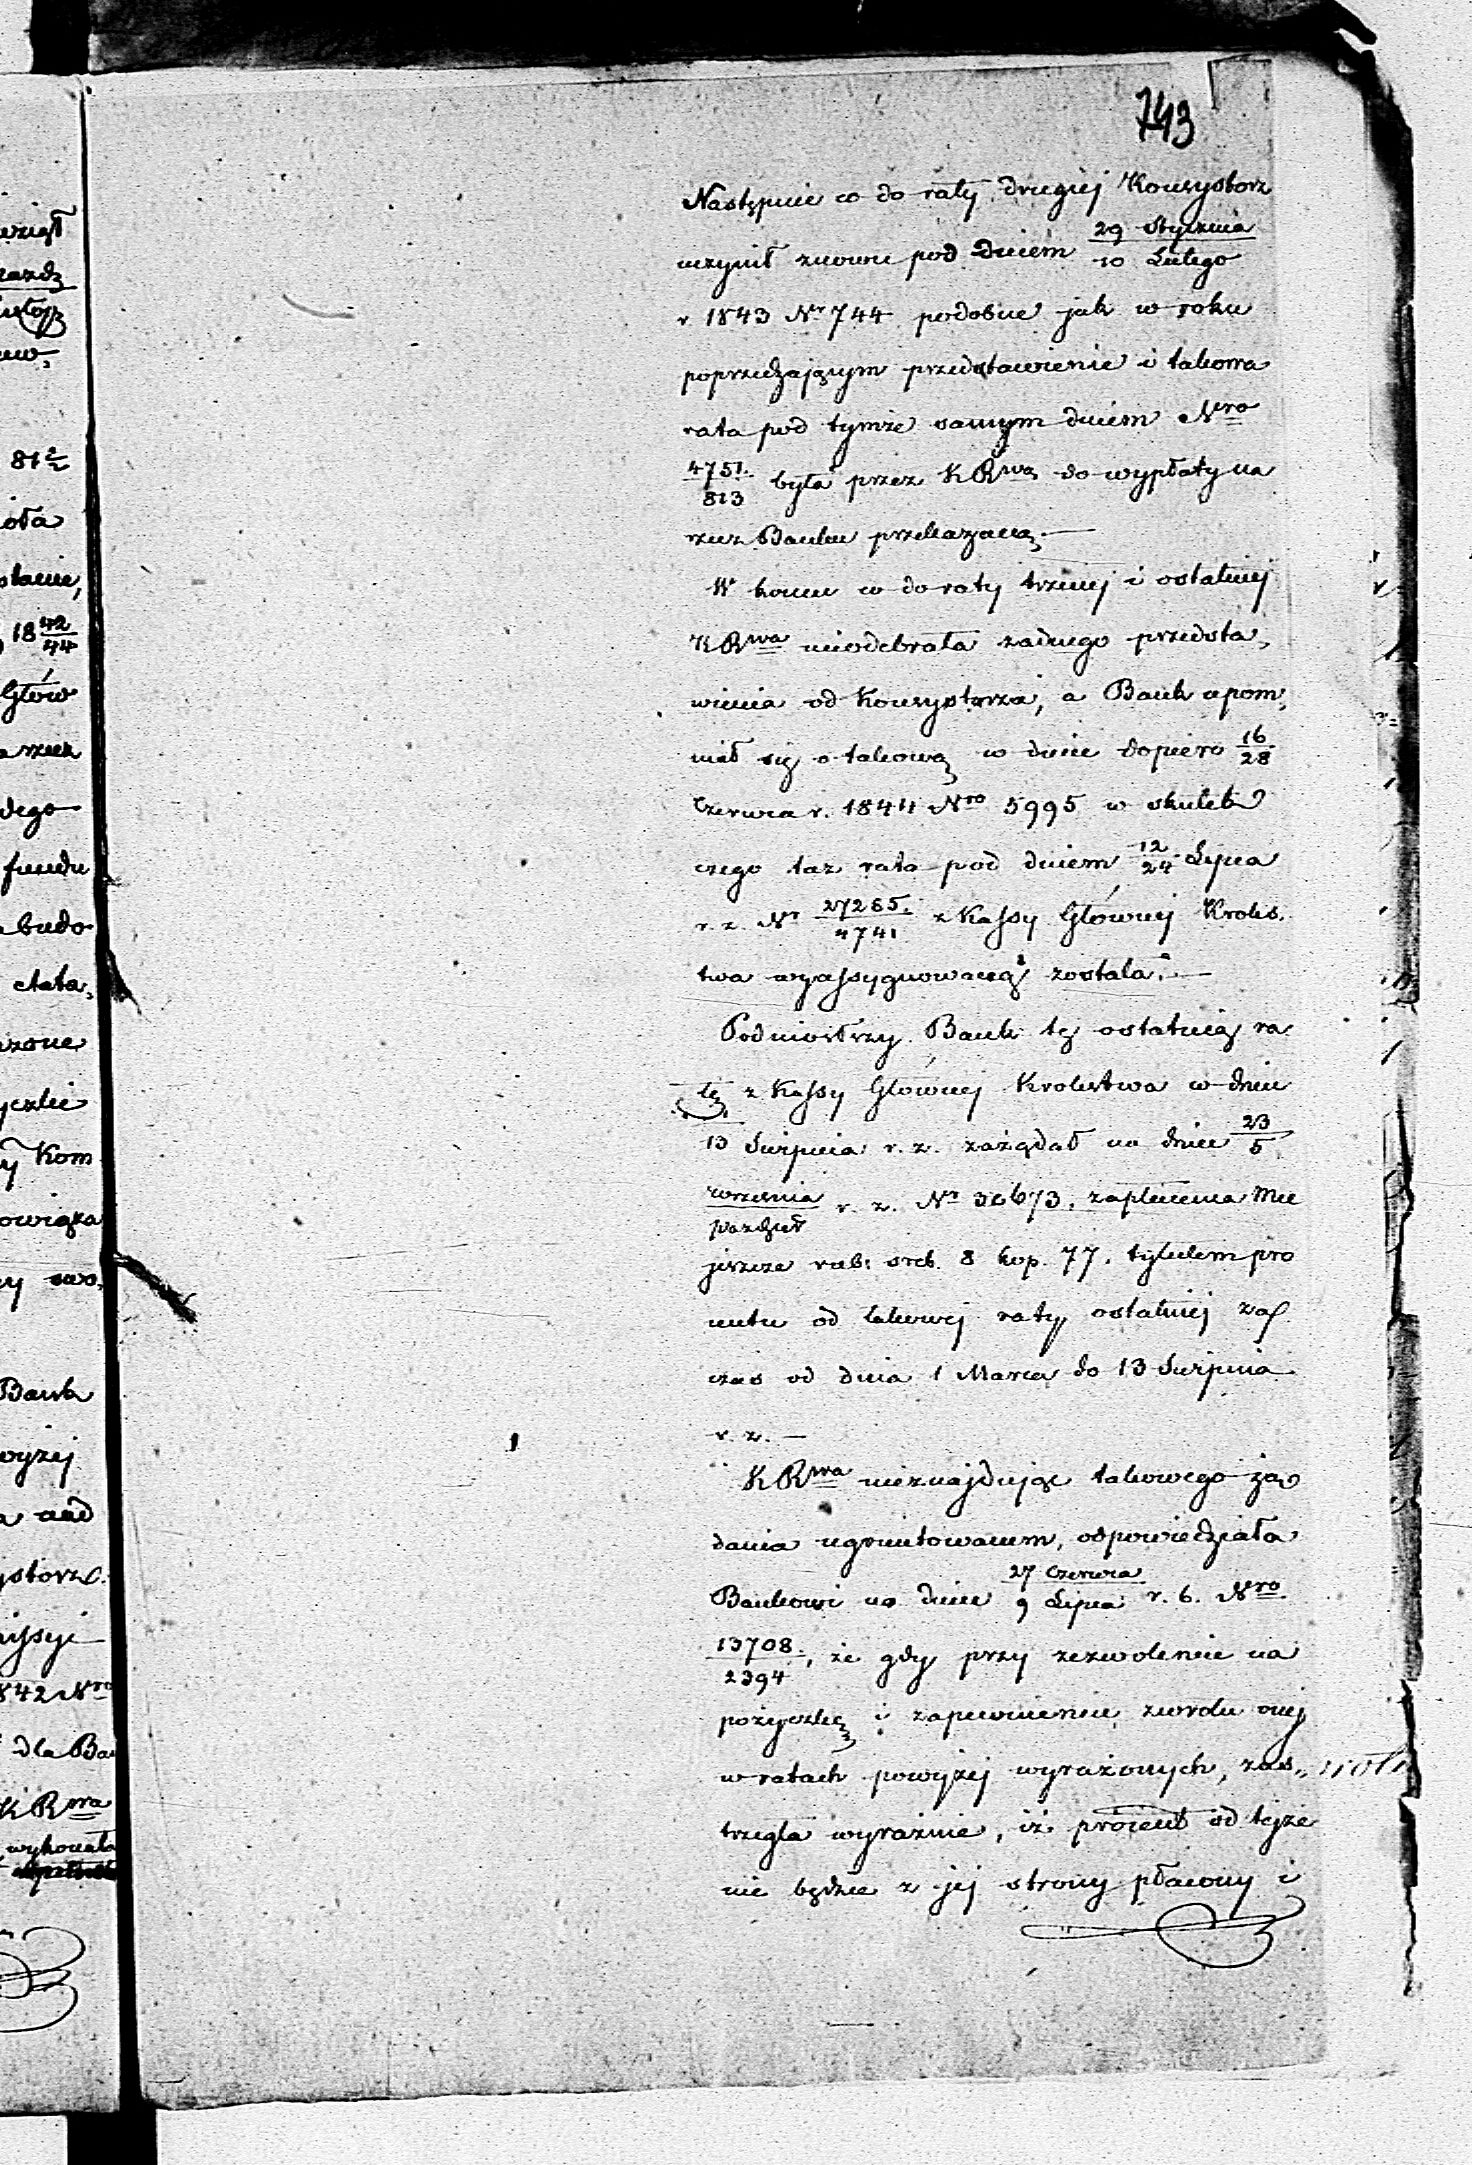 743
Następnie co do raty drugiej Konsystorz
uczynił znowu pod dniem 29 Stycznia / 10 Lutego
r 1843 Nr 744 podobne jak w roku
poprzedzającym przedstawienie i takowa
rata pod tymże samym dniem Nro
4751. / 813 była przez KRwą do wypłaty na
rzecz Banku przekazaną. —
W końcu co do raty trzeciej i ostatniej
KRwa nieodebrała żadnego przedsta,
wienia od Konsystorza, a Bank upom,
niał się o takową w dniu dopiero 16/28
Czerwca r. 1844 Nro 5995 w skutek
czego taż rata pod dniem 12/24 Lipca
r. z. Nr 27285. / 4741 z Kassy Głównej Króles.
twa wyassygnowaną została. —
Podniosłszy Bank tę ostatnią ra
tę z Kassy Głównej Królestwa w dniu
13 Sierpnia r. z. zażądał na dniu 23 / 5
września / paździer r. z. Nr 36673. zapłacenia Mu
jeszcze rub: sreb. 8 kop. 77. tytułem pro
centu od takowej raty ostatniej za
czas od dnia 1 Marca do 13 Sierpnia
r. z. —
KRwa nieznajdując takowego żą
dania ugruntowanem, odpowiedziała
Bankowi na dniu 27 Czerwca / 9 Lipca r. b. Nro
13708. / 2394, że gdy przy zezwoleniu na
pożyczkę i zapewnieniu zwrotu onej
w ratach powyżej wyrażonych, zas,,
trzegła wyraźnie, iż procent od tejże
nie będzie z jej strony płacony i